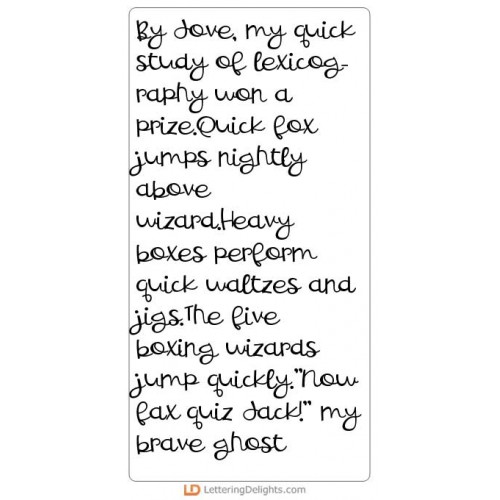 By Jove, my quick
study of lexicog-
raphy won a
prize.Quick fox
jumps nightly
above
wizard.Heavy
boxes perform
quick waltzes and
jigs.The five
boxing wizards
jump quickly."Now
fax quiz Jack!" my
brave ghost
LD LetteringDelights.com